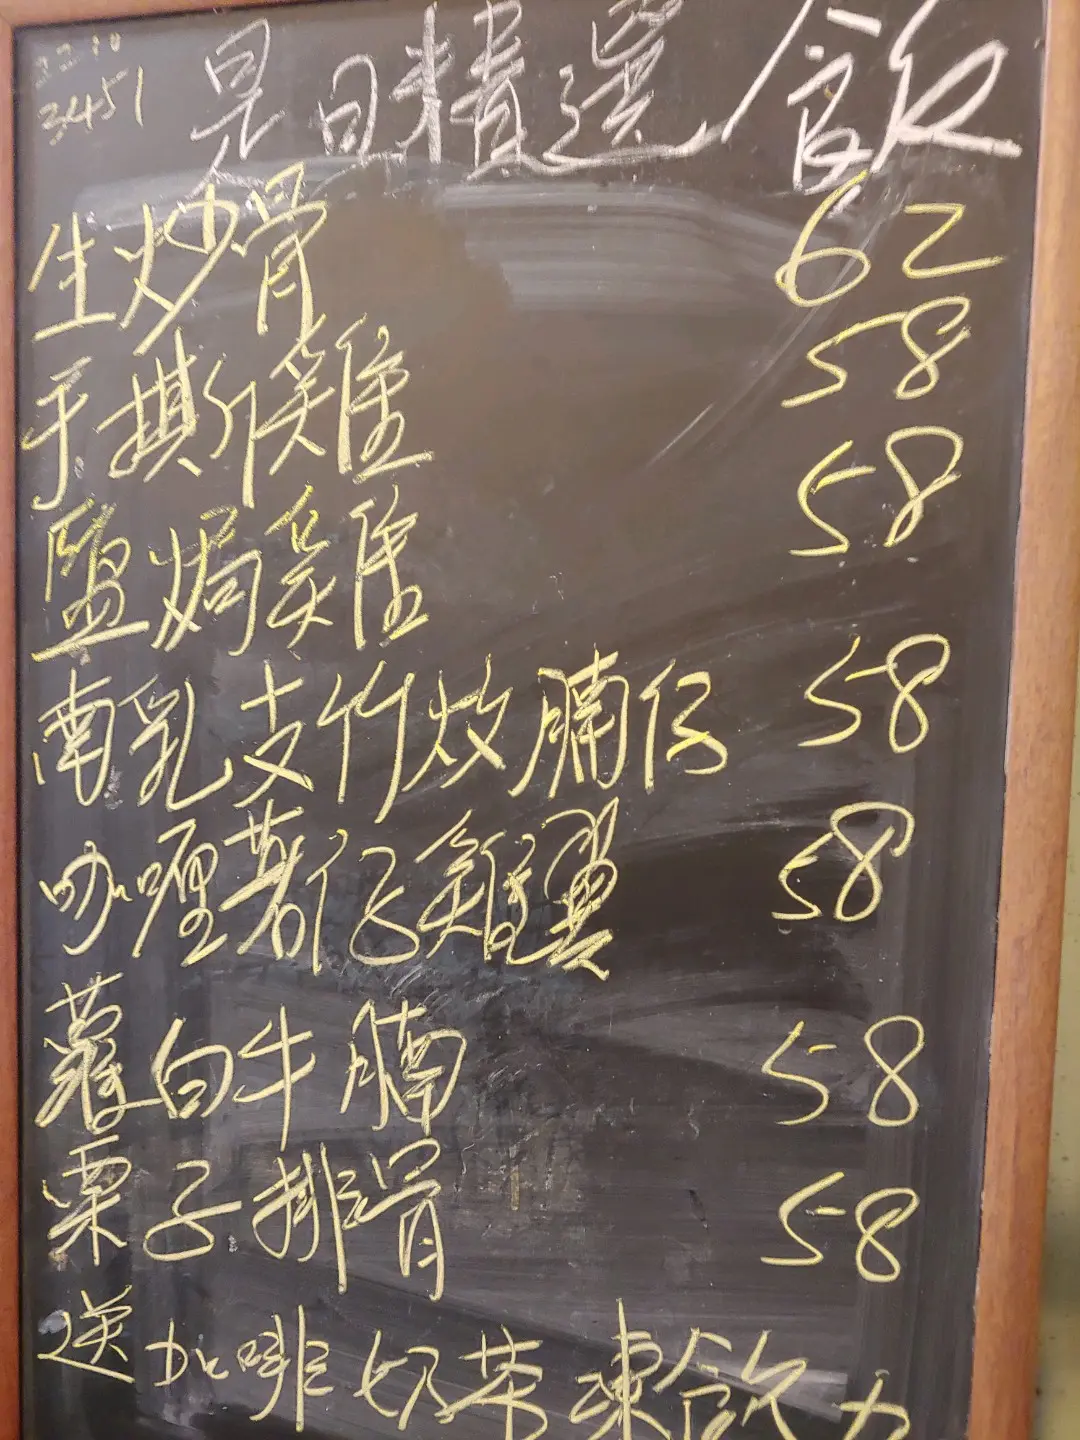 3451
是日精選 飯
生炒骨 62
手撕雞 58
鹽焗雞 58
南乳支竹炆腩仔 58
咖喱薯仔雞翼 58
蘿白牛腩 58
栗子排骨 58
送咖啡奶茶凍飲加